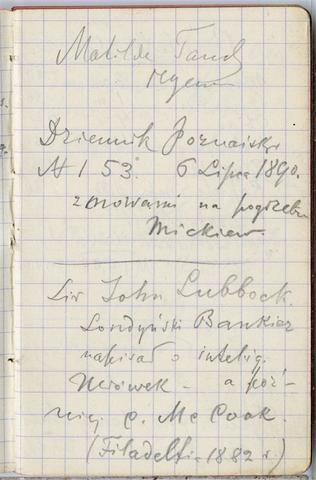 Matilde
Dziennik Poznańsk.
№ 153. 6 Lipca 1890.
z mowami na pogrzebie
Mickiew.
Sir John Lubbock.
Londyński Bankier
napisał o intelig.
Mrówek – a póź-
niej p. Mc Cook.
(Filadelfia 1882 r.)